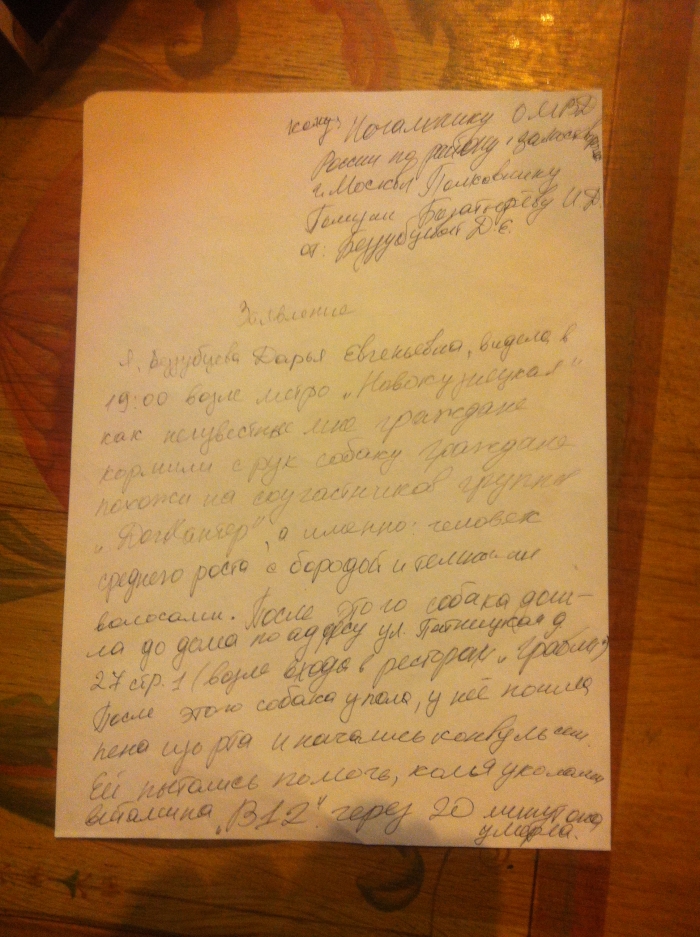 кому: Начальнику ОМВД
России по району "Замоскворечье
г. Москвы Полковнику
Полиции И.Д.
от: Беззубцевой Д.Е.
Заявление
Я, Беззубцева Дарья Евгеньевна, видела в
19:00 возле метро „Новокузнецкая"
как неизвестные мне граждане
кормили с рук собаку граждане
похожи на соучастников группы
„ДогХантер", а именно: человек
среднего роста с бородой и темными
волосами. После этого собака дош-
ла до дома по адресу ул. Пятницкая д
27 стр. 1 (возле входа в ресторан „Грабли")
После этого собака упала, у неё пошла
пена изо рта и начались конвульсии.
Ей пытались помочь, коля уколами
витамина „B12". через 20 минут она
умерла.